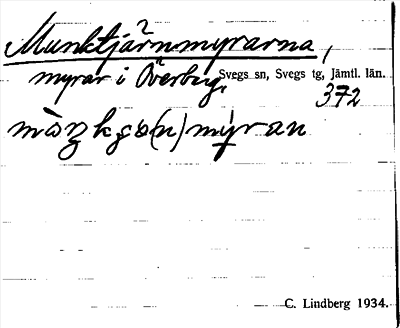 Munktjärnmyrarna,
myrar i Överberg, Svegs sn, Svegs tg, Jämtl. län.
372
C. Lindberg 1934.